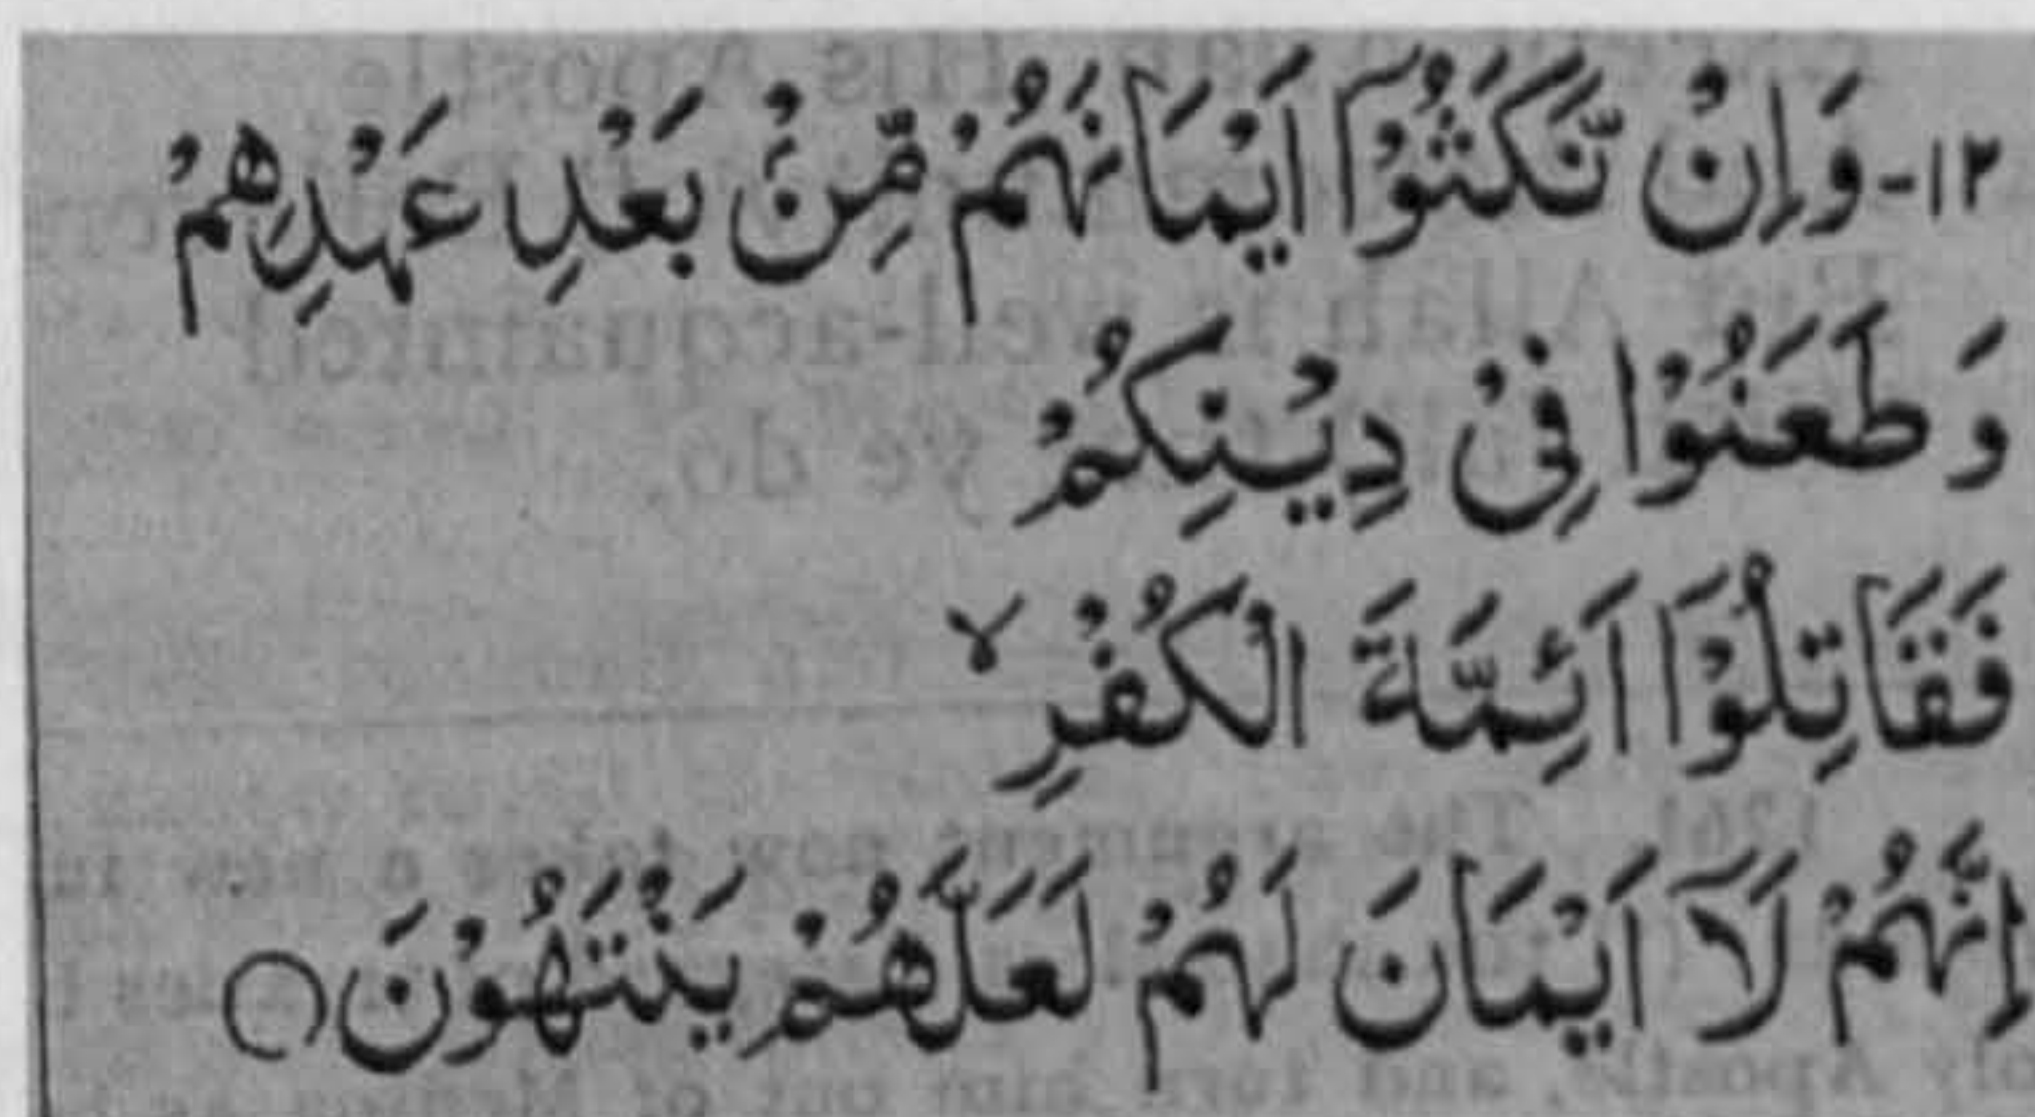 ١٢- وَاِنْ نَّكَثُوْٓا اَيْمَانَهُمْ مِّنْۢ بَعْدِ عَهْدِهِمْ
وَطَعَنُوْا فِىْ دِيْنِكُمْ
فَقَاتِلُوْٓا اَئِمَّةَ الْكُفْرِ ۙ
اِنَّهُمْ لَآ اَيْمَانَ لَهُمْ لَعَلَّهُمْ يَنْتَهُوْنَ ○